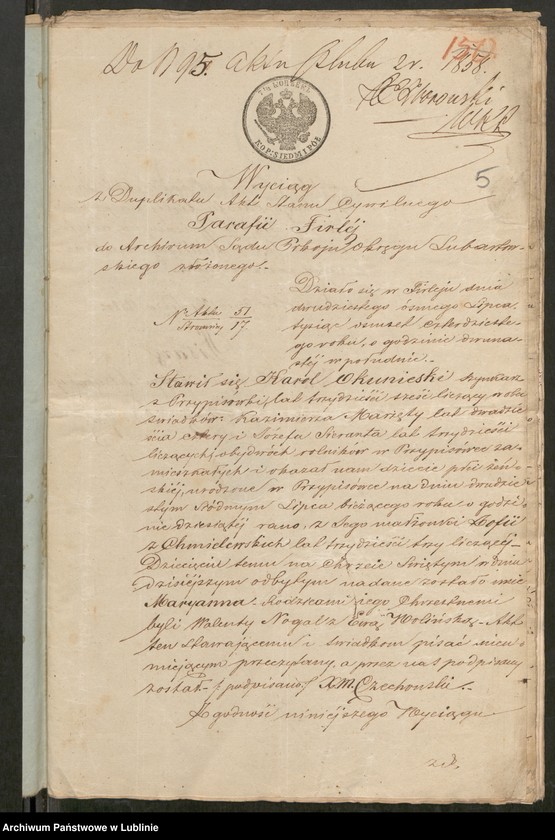 Do N 95. Aktu Ślubu z r. 1858.
5
Wyciąg
z Duplikatu Akt Stanu Cywilnego
Parafii Firlej
do Archiwum Sądu Pokoju Okręgu Lubartow-
skiego złożonego.
Działo się w Firleju dnia
dwudziestego ósmego Lipca,
tysiąc ośmset czterdzieste-
go roku, o godzinie dwuna-
stej w południe.
No Aktu 51
Stronnicy 17
Stawił się Karol Okunieski szynkarz
z Przypisówki, lat trzydzieści sześć liczący w obec
świadków Kazimierza Mazięty lat dwadzie-
ścia cztery i Józefa Sieranta lat trzydzieści
liczących, obydwóch rolników w Przypisówce za-
mieszkałych i okazał nam dziecie płci żeń-
skiéj, urodzone w Przypisówce na dniu dwudzie-
stym siódmym Lipca bieżącego roku o godzi-
nie dziesiątéj rano, z Jego małżonki Zofii
z Chmielewskich lat trzydzieści trzy liczącéj.
Dziecięciu temu na Chrzcie Świętym w dniu
dzisiejszym odbytym nadane zostało imie
Maryanna. Rodzicami jego Chrzestnemi
byli Walenty Nogal z Ewą Wolińską. Akt
ten Stawającemu i świadkom pisać nieu-
miejącym przeczytany, a przez nas podpisany
został. /podpisano/ X. M. Czechowski.
Zgodność niniejszego Wyciągu
Archiwum Państwowe w Lublinie